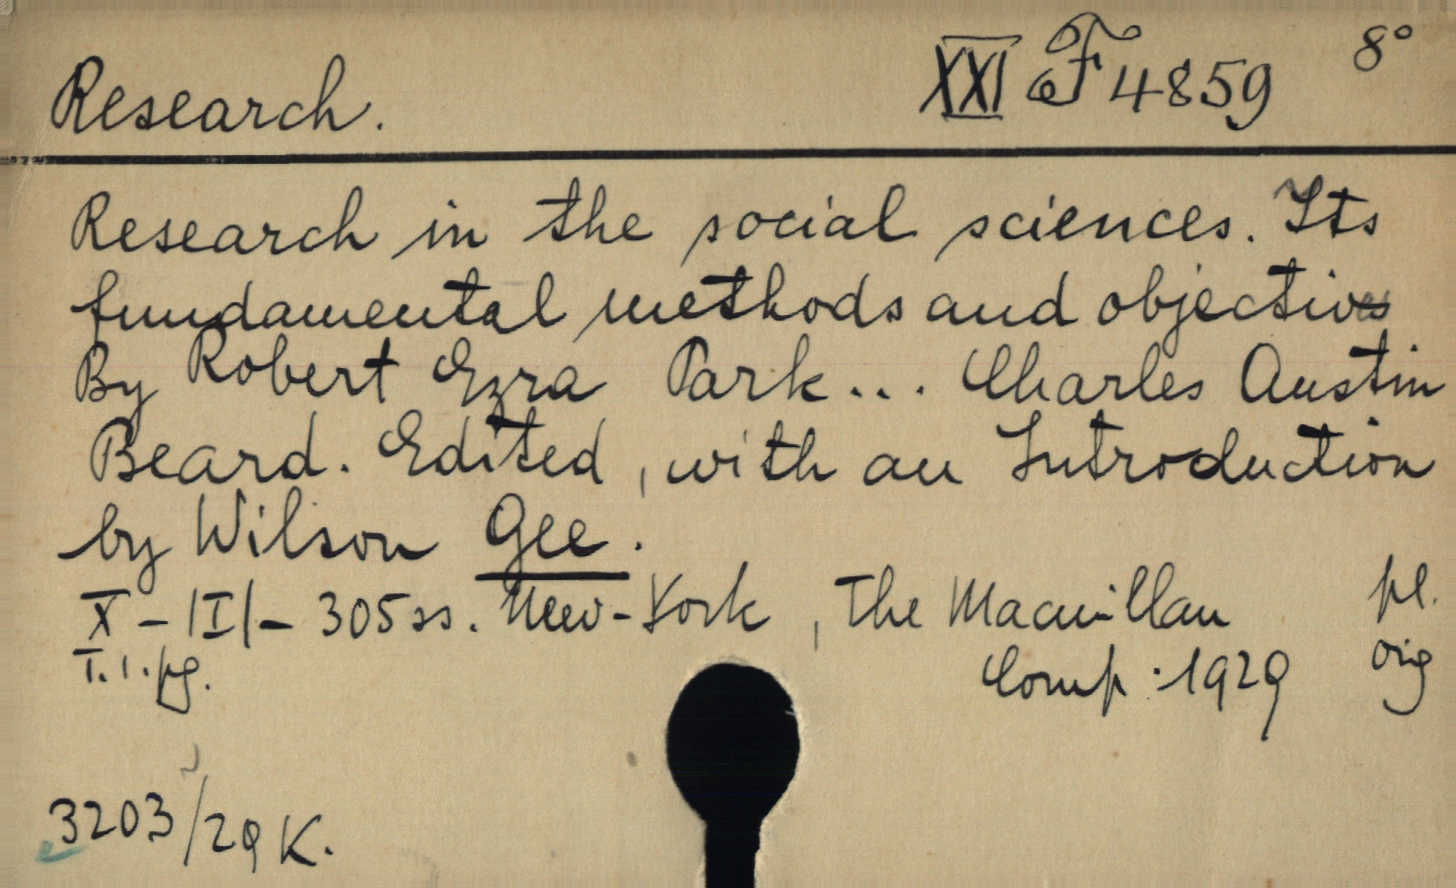 Research. XXI F 4859 8°
Research in the social sciences. Its
fundamental methods and objectives
By Robert Ezra Park... Charles Austin
Beard. Edited, with an Introduction
by Wilson Gee.
X - |I| - 305 ss. New-York, The Macmillan pl.
T. 1. pg. Comp. 1929 orig
3203/29 K.